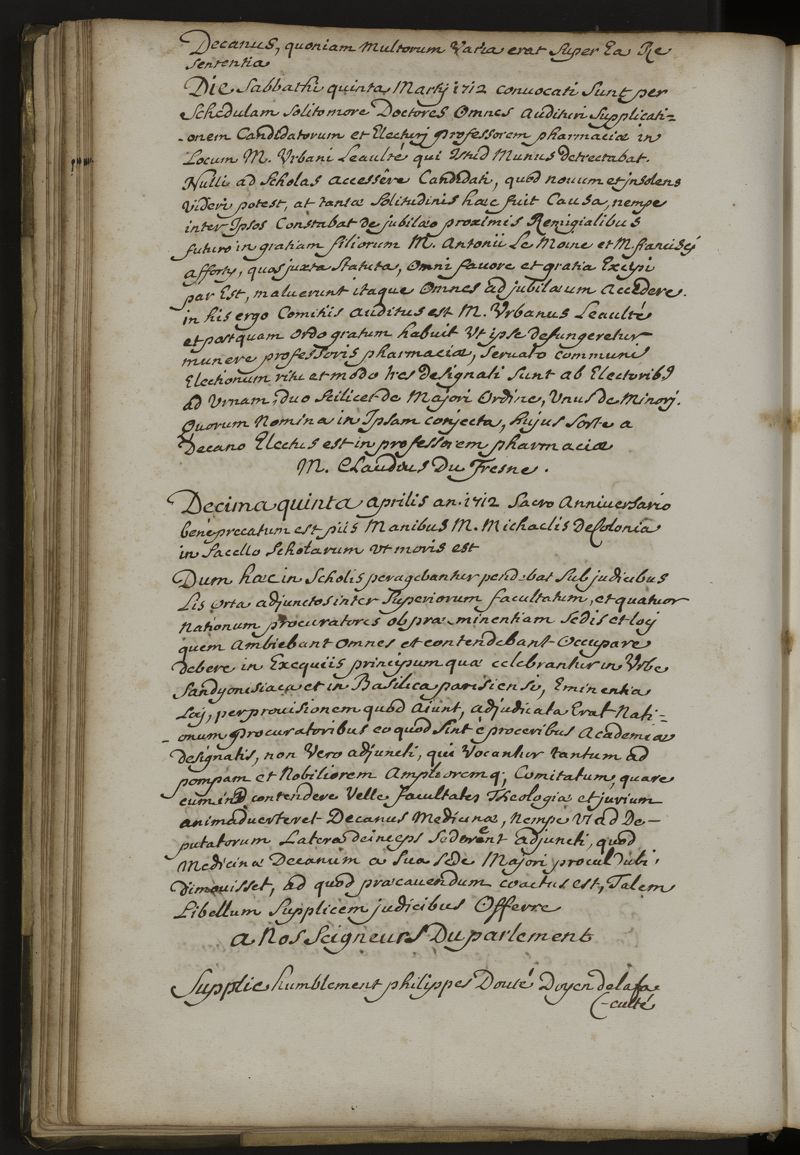 Decanus, quoniam multorum Varia erat super Ea Re
sententia
Die Sabbathi quinta Martij 1712 convocati sunt per
Schedulam solito more Doctores Omnes Audituri Supplicati=
-onem Candidatorum et Electurj professorem pharmaciæ in
Locum M. Vrbani Leaulté qui Istud Munus detrectabat.
Nulli ad Scholas accessêre Candidati, quod novum et jnsolens
videri potest, at tantæ solitudinis hæc fuit Causa, nempe
inter Ipsos Constabat de jubilæo proximis Remigialibus
futuro in gratiam filiorum M. Antonii Le Moine et M. franciscj
afforty, quos juxta statuta, Omni favore et gratia Excipi
par Est, maluerunt itaque Omnes ad jubilæum Accedere.
in his ergo Comitiis auditus est M. Vrbanus Leaulté
et postquam Ordo gratum habuit Vt ipse defungeretur
munere professoris pharmaciæ, servato communi
Electionum ritu et modo tres designati sunt ab Electorib9
ad Vrnam, duo scilicet de Majori Ordine, Vnus de Minorj.
Quorum Nomina in Ipsam conjecta, hujus sorte a
Decano Electus est in professorem pharmaciæ
M. Claudius Du Fresne.
Decima quinta aprilis an. 1712 Sacro Anniversario
bene precatum est piis Manibus M. Michaelis De Colonia
in Sacello Scholarum vt moris est
Dum hæc in Scholis peragebantur pendebat sub judicibus
Lis Orta adjunctos inter Superiorum facultatum, et quatuor
Nationum procuratores ob præminentiam sedis et locj
quem Ambiebant omnes et contendebant Occupare
debere in Exequiis principum quæ celebrantur in Vrbe
Sandyonisiaca et in Basilica parisiensi, Eminentia
Locj, per provisionem quod aiunt, adjudicata Erat Nati=
-onum procuratoribus eo quod sint è proceribus Academiæ
designatis, non Vero adjuncti, qui Vocantur tantum ad
pompam et Nobiliorem Amplioremq; Comitatum, quare
cum in id contendere Velle facultates Theologiæ et jurium
animadverteret Decanus Medicinæ, Nempe Vt ad De-
putatorum Latera deinceps sederent adjuncti, quod
Medicinæ Decanum a sua sede Majori procul dubi
dimovisset, ad quod præcavendum coactus est, Talem
Libellum Supplicem judicibus Offerre
a Nos Seigneurs Du parlement
Supplie humblement philippes Douté Doyen de la fa
-culté